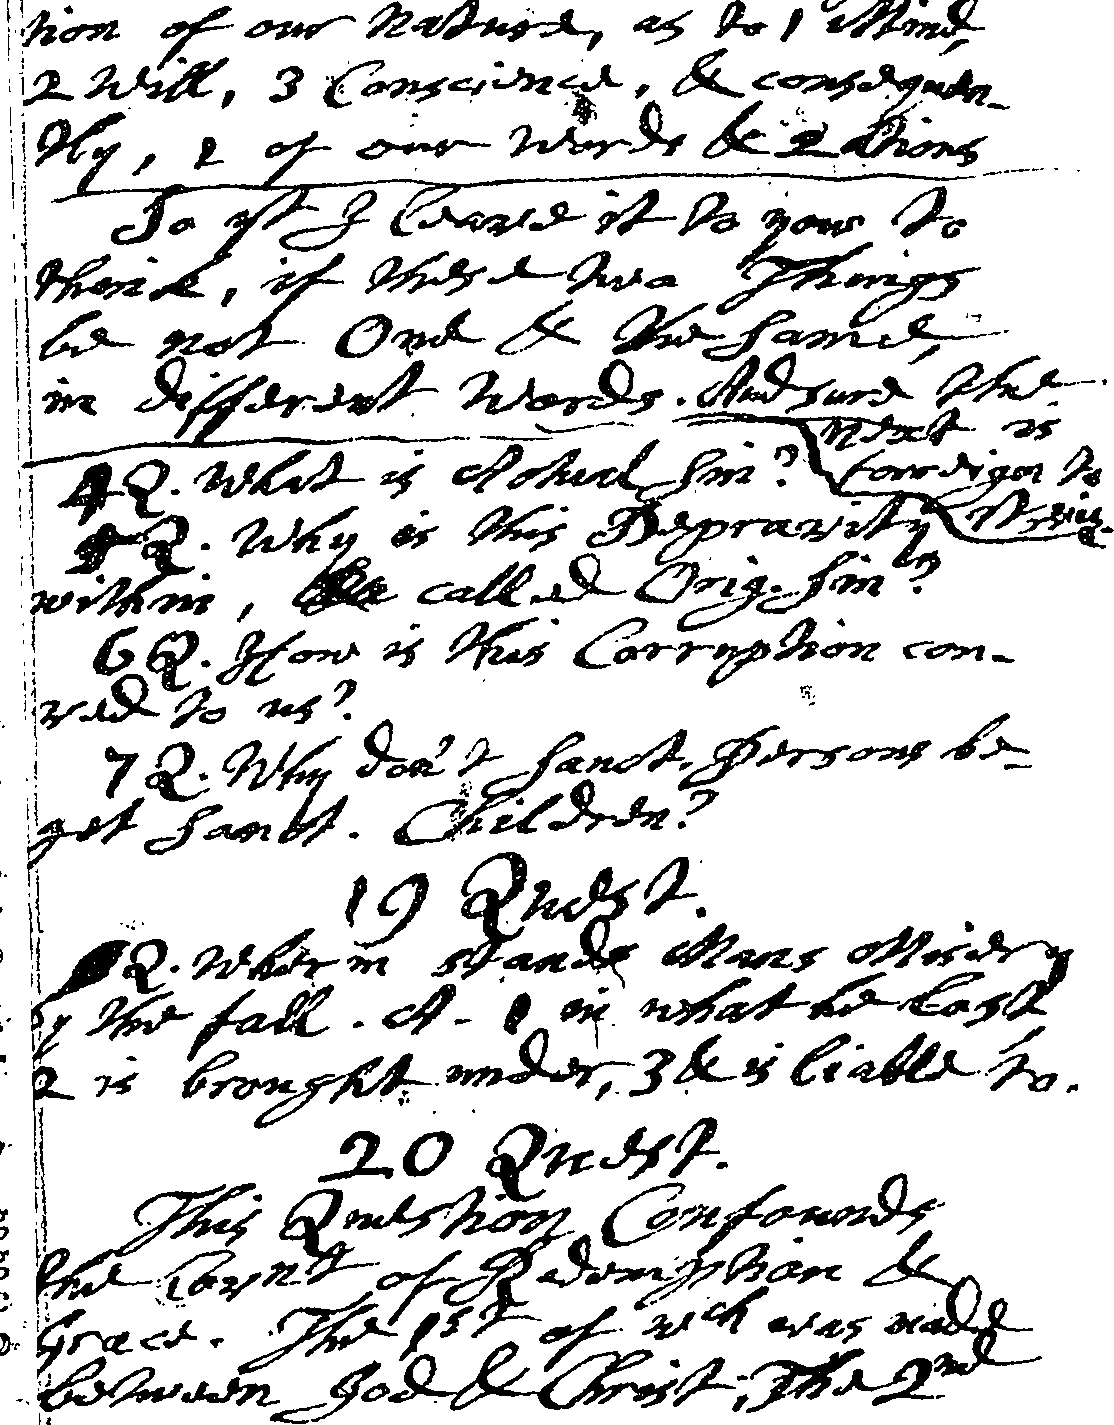 tion of our Nature, as to 1 Mind,
2 Will, 3 Conscience, & consequen-
tly, 1 of our Words & 2 Ations
So yt I leave it to your to
think, if these two Things
be not One & the same,
in different Words. And sure the
next is
4 Q. What is Actual sin? foreign to
5 Q. Why is this Depravity
within, called Orig. sin?
6 Q. How is this Corruption con-
ved to us?
7 Q. Why don't sanct. Persons be-
get sanct. Children?
19 Quest.
Q. Wherin stands Mans Misery
by the fall. A- 1 in what he Lost,
2 is brought under, 3 & is liable to.
20 Quest.
This Question Confounds
the Covnt of Redemption &
Grace. The 1st of wch was made
between God & Christ, The 2nd